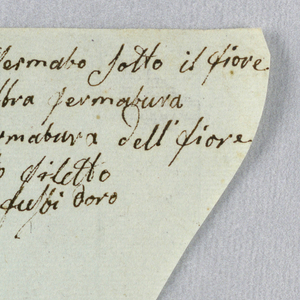 fermato sotto il fiore
bra fermatura
rmatura dell' fiore
o filetto
fussi doro